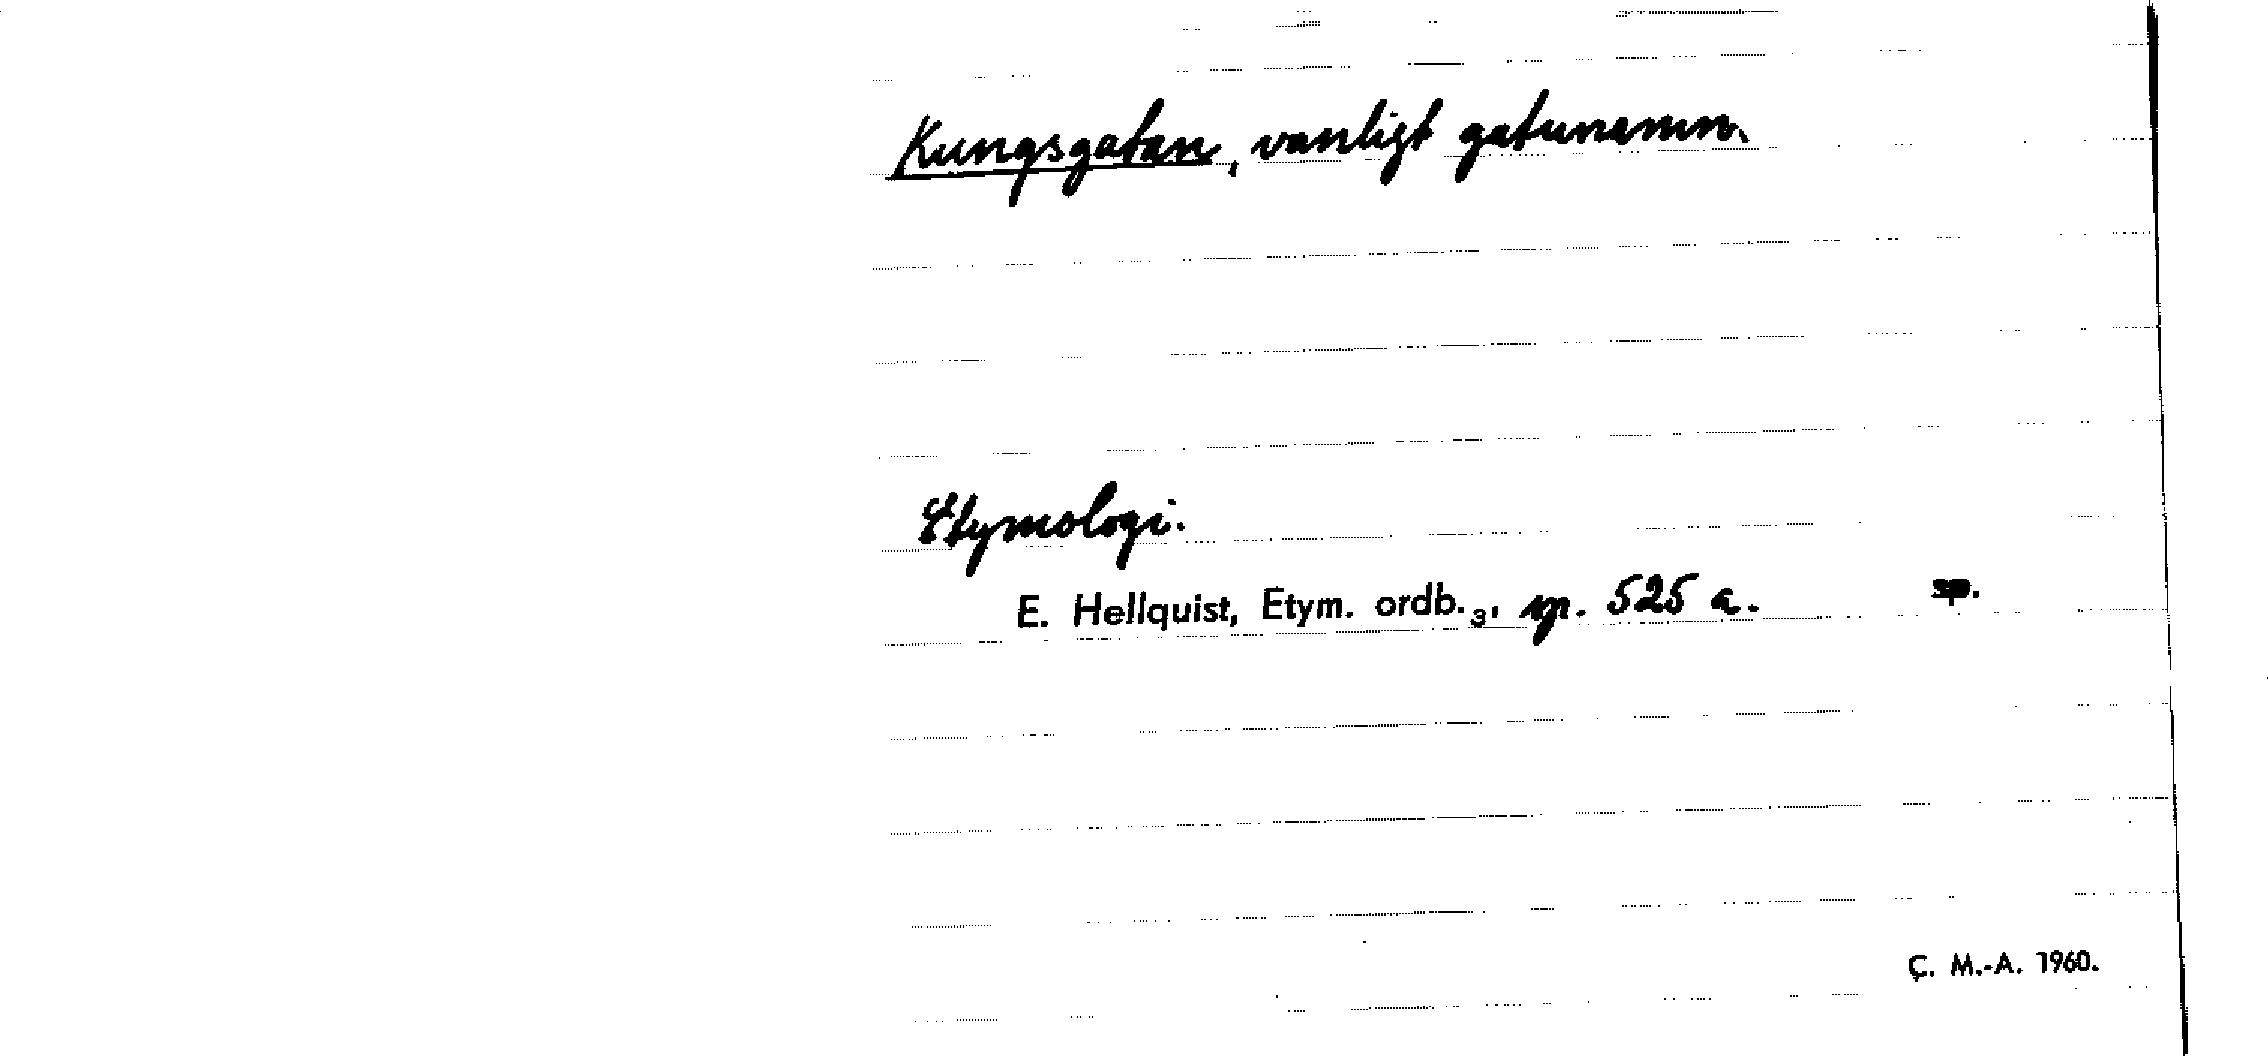 Kungsgatan, vanligt gatunamn.
Etymologi.
E. Hellquist, Etym. ordb.₃, sp. 525 a. sp.
C. M.-A. 1960.